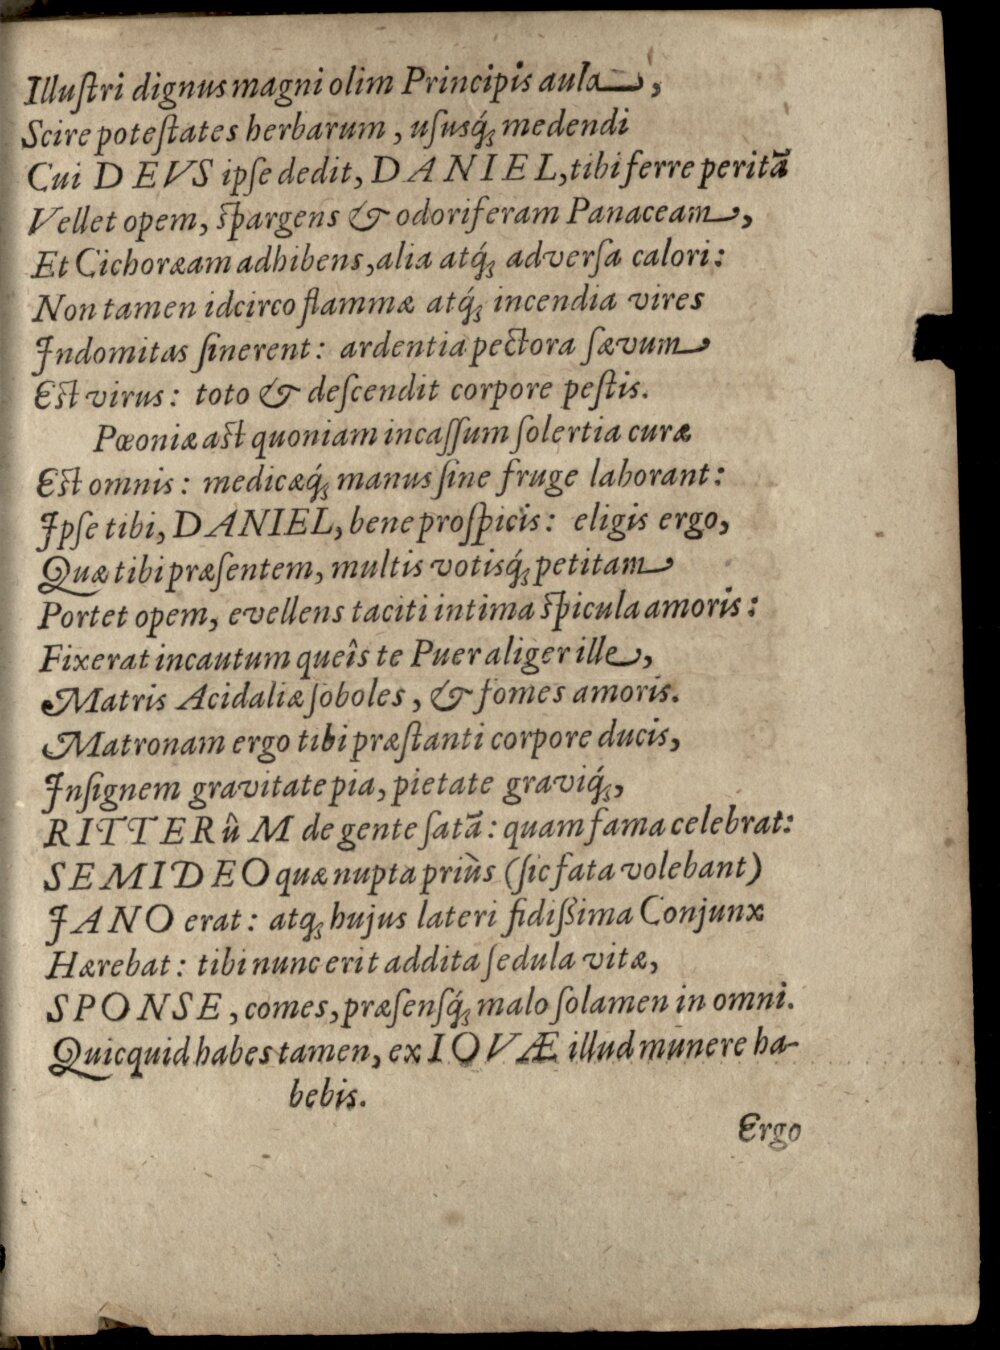 Illuſtri dignus magni olim Principis aula,
Scire poteſtates herbarum, uſusq́; medendi
Cui DEVS ipſe dedit, DANIEL, tibi ferre peritã
Vellet opem, ſpargens & odoriferam Panaceam,
Et Cichoræam adhibens, alia atq́; adverſa calori:
Non tamen idcirco flammæ atq́; incendia vires
Indomitas ſinerent: ardentia pectora ſævum
Eſt virus: toto & deſcendit corpore peſtis.
Pœoniæ aſt quoniam incaſſum ſolertia curæ
Eſt omnis: medicæq́; manus ſine fruge laborant:
Ipſe tibi, DANIEL, bene proſpicis: eligis ergo,
Quæ tibi præſentem, multis votisq́; petitam
Portet opem, evellens taciti intima ſpicula amoris:
Fixerat incautum queîs te Puer aliger ille,
Matris Acidaliæ ſoboles, & fomes amoris.
Matronam ergo tibi præſtanti corpore ducis,
Inſignem gravitate pia, pietate graviq́;,
RITTERûM de gente ſatã: quam fama celebrat:
SEMIDEO quæ nupta priùs (ſic fata volebant)
JANO erat: atq; hujus lateri fidißima Conjunx
Hærebat: tibi nunc erit addita ſedula vitæ,
SPONSE, comes, præſensq́; malo ſolamen in omni.
Quicquid habes tamen, ex IOVÆ illud munere ha-
bebis.
Ergo